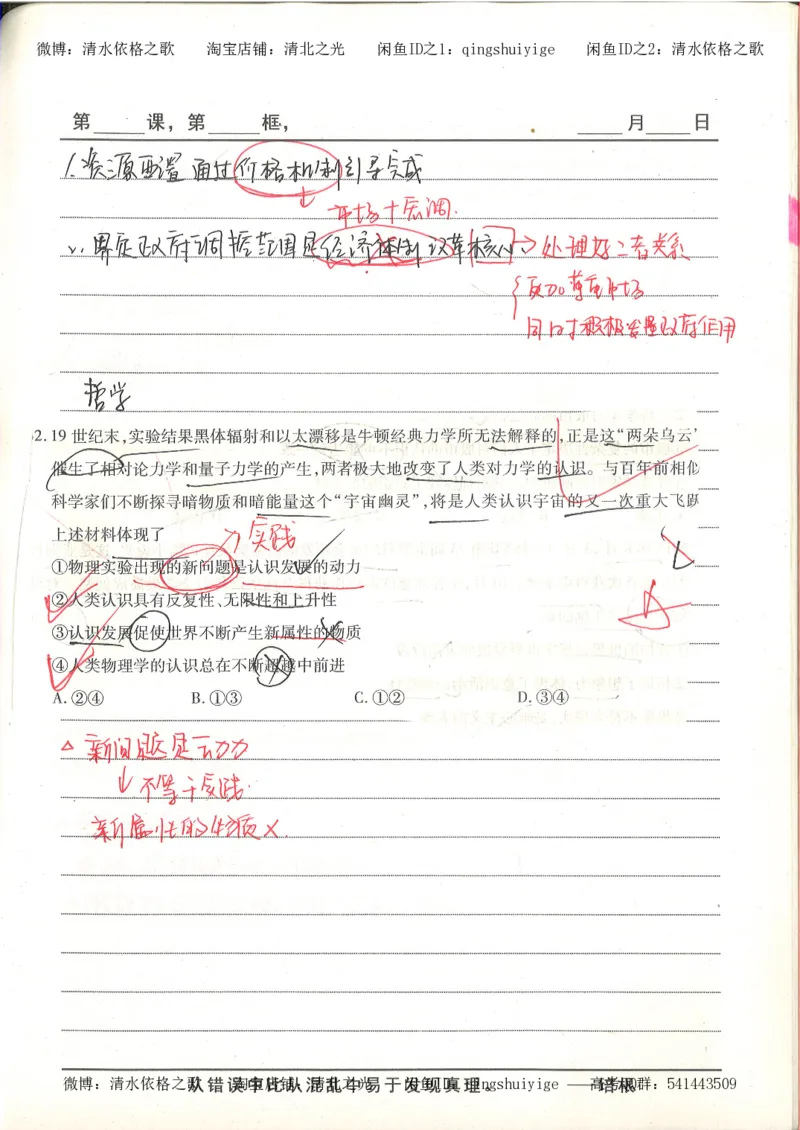 微博：清水依格之歌 淘宝店铺：清北之光 闲鱼ID之1：qingshuiyige 闲鱼ID之2：清水依格之歌
第 课，第 框， 月 日
1.资源配置通过价格机制引导完成
市场+宏调.
2.界定政府调控范围是经济体制改革核心→处理好二者关系
更加尊重市场
同时积极发挥政府作用
哲学
2.19世纪末，实验结果黑体辐射和以太漂移是牛顿经典力学所无法解释的，正是这“两朵乌云”
催生了相对论力学和量子力学的产生，两者极大地改变了人类对力学的认识。与百年前相似
科学家们不断探寻暗物质和暗能量这个“宇宙幽灵”，将是人类认识宇宙的又一次重大飞跃
上述材料体现了
实践
①物理实验出现的新问题是认识发展的动力
②人类认识具有反复性、无限性和上升性
A
③认识发展促使世界不断产生新属性的物质
④人类物理学的认识总在不断超越中前进
A.②④ B.①③ C.①② D.③④
△新问题是动力
↓不等于实践.
新属性的物质×.
微博：清水依格之歌 淘宝店铺：清北之光 闲鱼ID：qingshuiyige 高考QQ群：541443509
从错误中比从混乱中易于发现真理。 ——培根